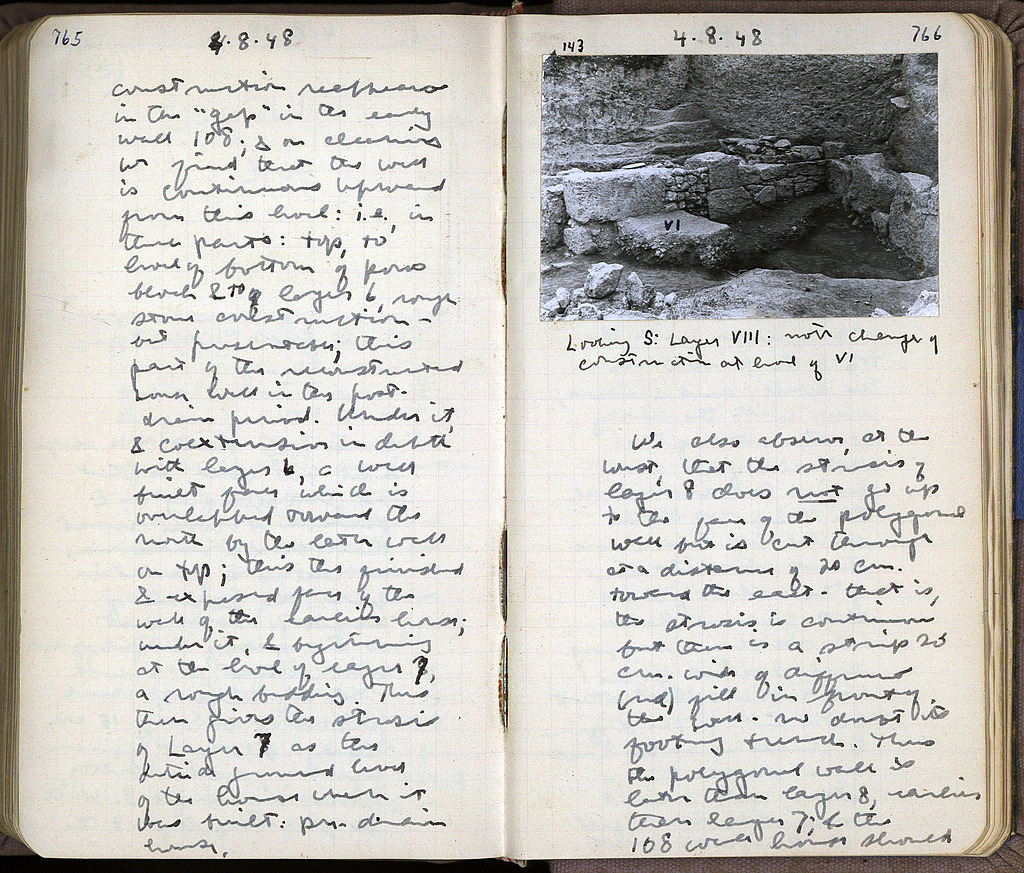 765
4.8.48
construction reappears
in the "gap" in the early
wall 108; & on cleaning
we find that the wall
is continuous upward
from this level: i.e. in
three parts: top, to
level of bottom of poros
block & top of layer 6, rough
stone construction –
our presumably; this
part of the reconstructed
house wall in this post-
drain period. Under it,
& coextensive in depth
with layer 6, a well
built face, which is
overlapped toward the
north by the later wall
on top; this the finished
& exposed face of the
wall of the earlier house;
under it, & beginning
at the level of layer 7,
a rough bedding. This
then gives the strosis
of Layer 7 as the
outside ground level
of the house when it
was built: pre-drain
house.
143
4.8.48
766
VI
Looking S: Layer VIII: note change of
construction at level of VI
We also observe, at the
west, that the strosis of
layer 8 does not go up
to the face of the polygonal
wall but is cut through
at a distance of 20 cm.
toward the east - that is,
the strosis is continuous
but there is a strip 20
cm. wide of different
(red) fill in front of
the wall - no doubt its
footing trench. Thus
the polygonal wall is
later than layer 8, earlier
than layer 7; & the
108 wall house should